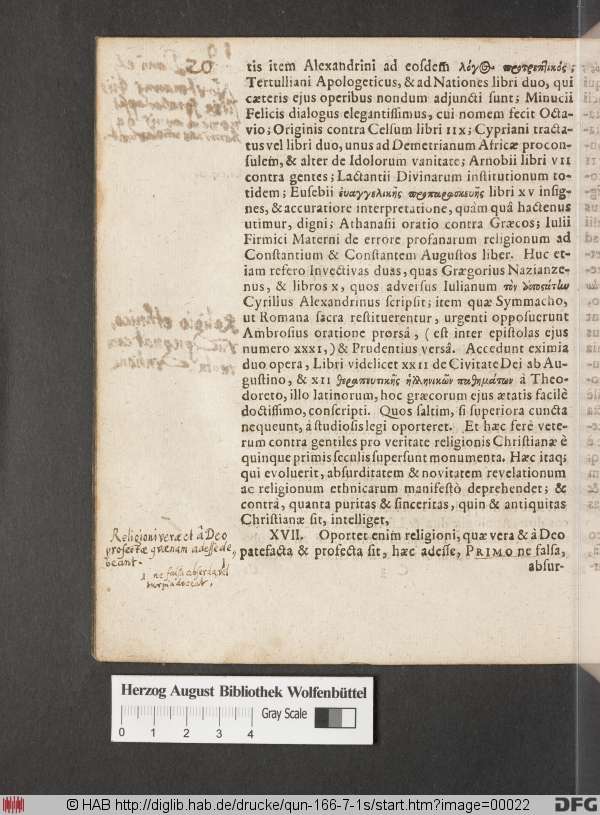 tis item Alexandrini ad eosdem λόγος προτρεπτικός;
Tertulliani Apologeticus, & ad Nationes libri duo, qui
cæteris ejus operibus nondum adjuncti sunt; Minucii
Felicis dialogus elegantissimus, cui nomem fecit Octa-
vio; Originis contra Celsum libri IIX; Cypriani tracta-
tus vel libri duo, unus ad Demetrianum Africæ procon-
sulem, & alter de Idolorum vanitate; Arnobii libri VII
contra gentes; Lactantii Divinarum institutionum to-
tidem; Eusebii ἐυαγγελικῆς προπαρασκευῆς libri XV insig-
nes, & accuratiore interpretatione, quàm quâ hactenus
utimur, digni; Athanasii oratio contra Græcos; Iulii
Firmici Materni de errore profanarum religionum ad
Constantium & Constantem Augustos liber. Huc et-
iam refero Invectivas duas, quas Grægorius Nazianze-
nus, & libros X, quos adversus Iulianum τὸν
Cyrillus Alexandrinus scripsit; item quæ Symmacho,
ut Romana sacra restituerentur, urgenti opposuerunt
Ambrosius oratione prorsâ, (est inter epistolas ejus
numero XXXI,) & Prudentius versâ. Accedunt eximia
duo opera, Libri videlicet XXII de Civitate Dei ab Au-
gustino, & XII θεραπευτικῆς ἑλληνικῶν παθημάτων à Theo-
doreto, illo latinorum, hoc græcorum ejus ætatis facilè
doctissimo, conscripti. Quos saltim, si superiora cuncta
nequeunt, à studiosis legi oporteret. Et hæc ferè vete-
rum contra gentiles pro veritate religionis Christianæ è
quinque primis seculis supersunt monumenta. Hæc itaq;
qui evoluerit, absurditatem & novitatem revelationum
ac religionum ethnicarum manifestò deprehendet; &
contrà, quanta puritas & sinceritas, quin & antiquitas
Christianæ sit, intelliget,
XVII. Oportet enim religioni, quæ vera & à Deo
patefacta & profecta sit, hæc adesse, PRIMO ne falsa,
absur-
Religioni veræ et à Deo
profectæ quænam adesse de-
beant.
1. ne falsa absurda vel
Herzog August Bibliothek Wolfenbüttel
Gray Scale
0 1 2 3 4
© HAB http://diglib.hab.de/drucke/qun-166-7-1s/start.htm?image=00022
DFG